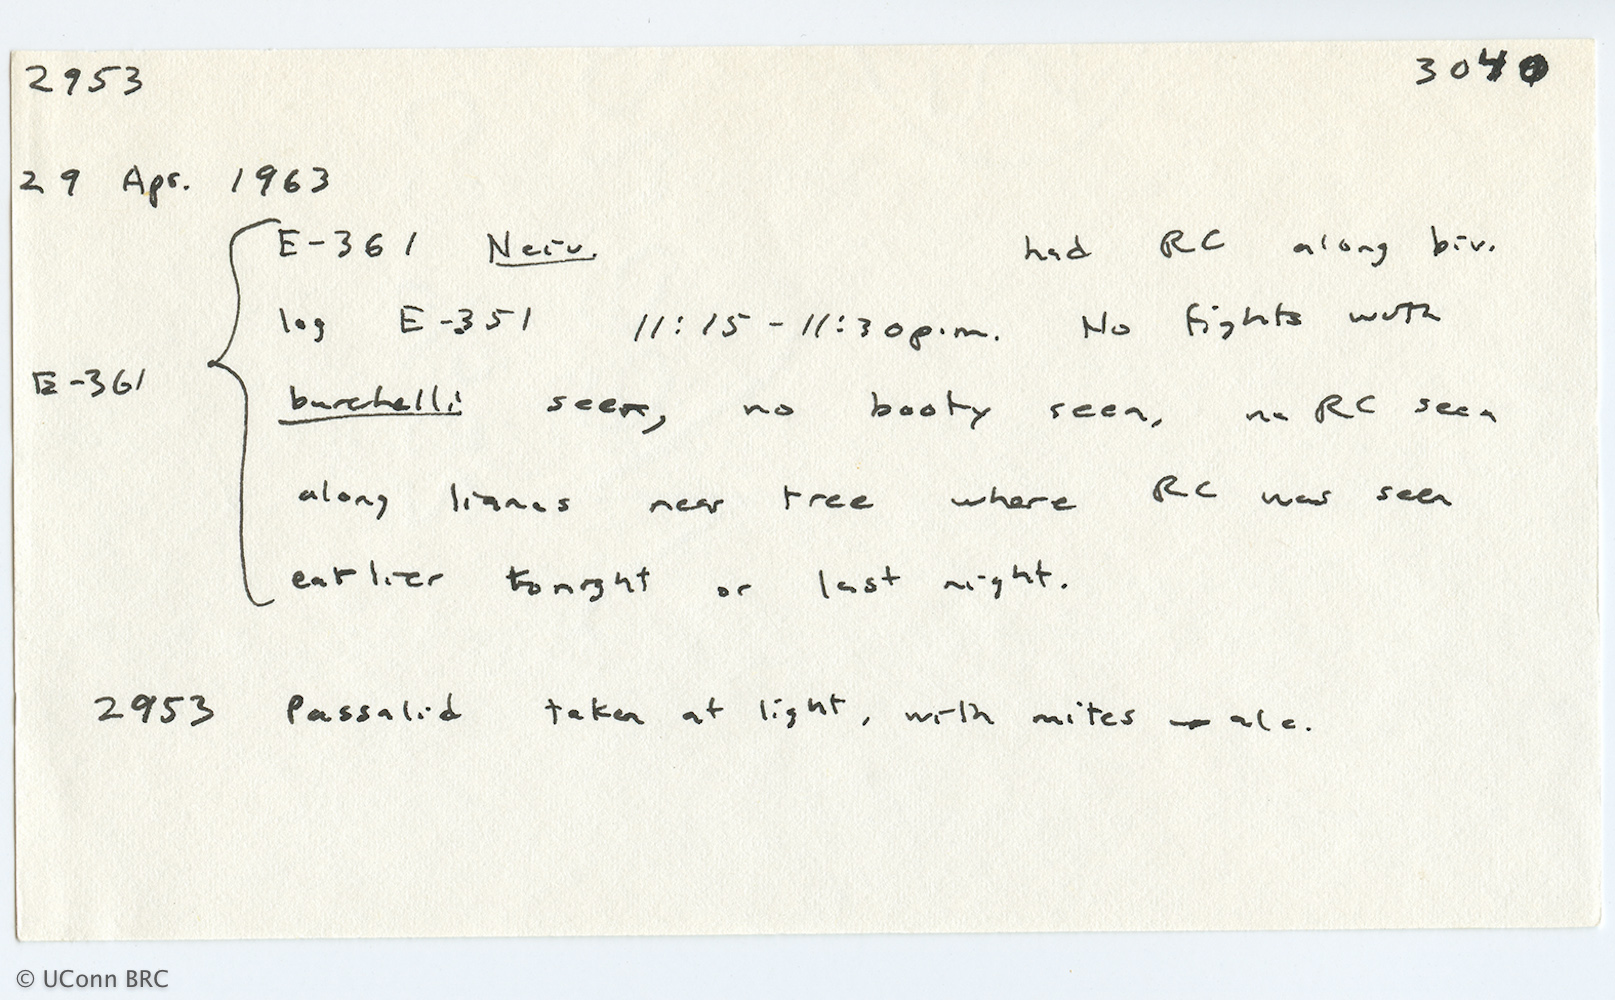 2953 3040
29 Apr. 1963
E-361 Neiv. had RC along biv.
log E-351 11:15-11:30 p.m. No fights with
E-361
burchelli seen, no booty seen, no RC seen
along lianas near tree where RC was seen
earlier tonight or last night.
2953 Passalid taken at light, with mites - alc.
© UConn BRC